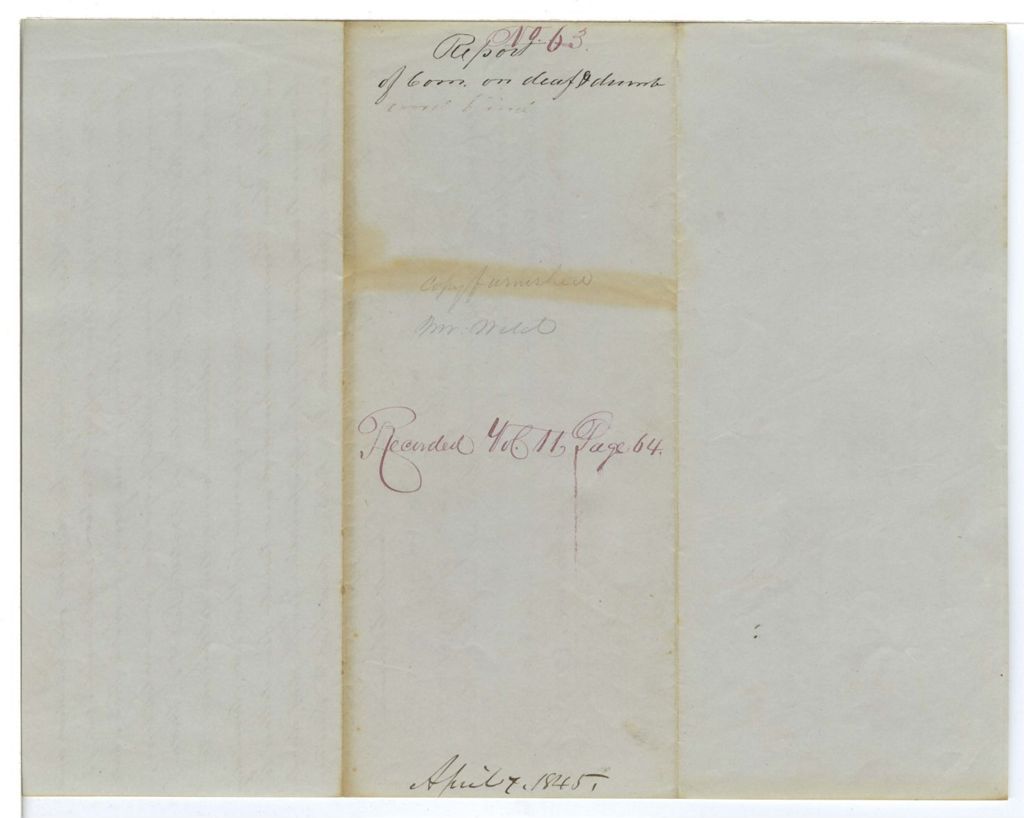 No. 63.
Report
of Com. on deaf & dumb
and blind
Copy furnished
Mr. Welch
Recorded Vol. 11, Page 64.
April 7. 1845.